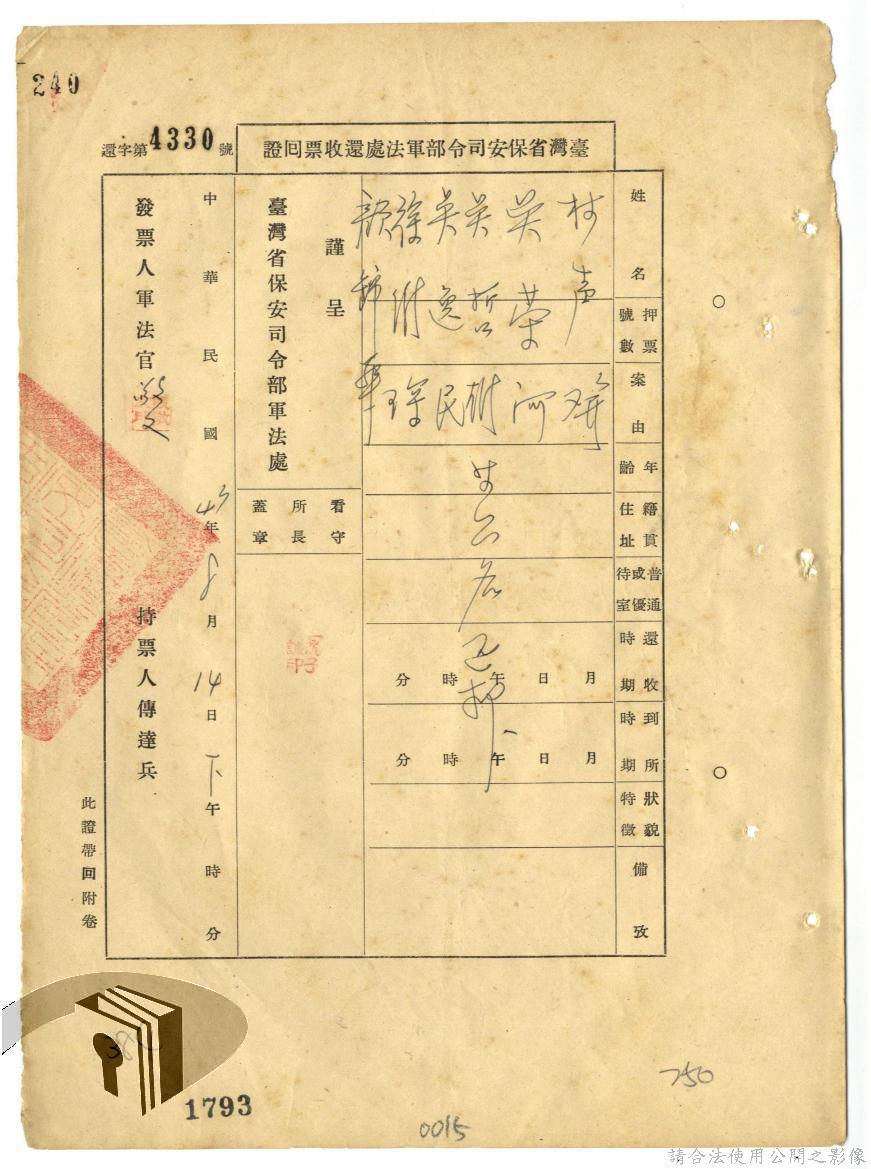 240
還字第4330號
臺灣省保安司令部軍法處還收票回證
姓名
押票號數
案由
年齡
籍貫住址
普通或優待室
還收時期
到所時期
狀貌特徵
備攷
林声
吳荣河
吳哲
吳逸民
徐
顏錦華
廿六名
月日午時分
月日午時分
謹呈
臺灣省保安司令部軍法處
看守所長蓋章
中華民國43年8月14日下午時分
發票人軍法官
持票人傳達兵
此證帶回附卷
38
1793
0015
750
請合法使用公開之影像